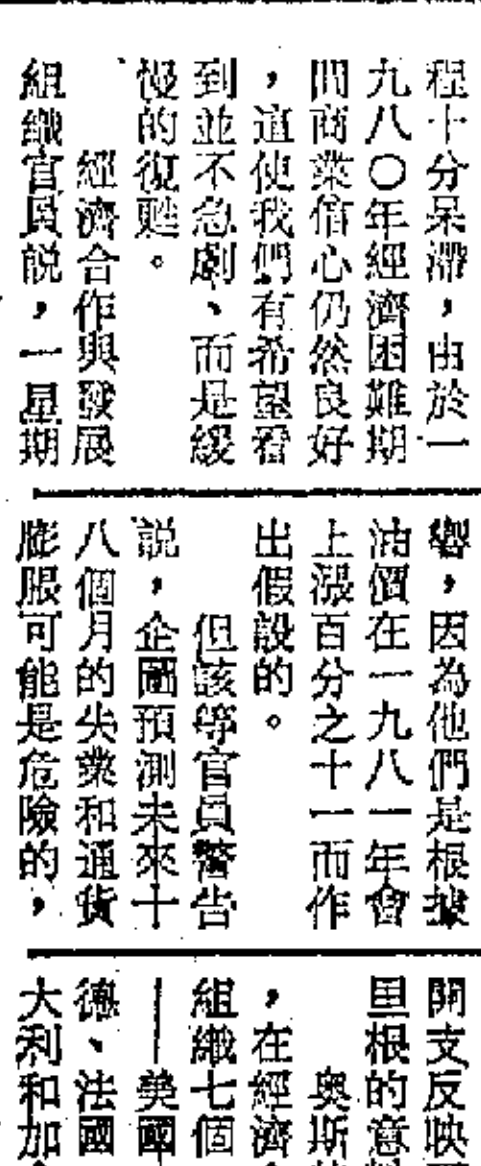 程十分呆滯，由於一
九八〇年經濟困難期
間商業信心仍然良好
，這使我們有希望看
到並不急劇、而是緩
慢的復甦。
經濟合作與發展
組織官員説，一星期
響，因為他們是根據
油價在一九八一年會
上漲百分之十一而作
出假設的。
但該等官員警告
説，企圖預測未來十
八個月的失業和通貨
膨脹可能是危險的，
開支反映
里根的意
奧斯
，在經濟
組織七個
—美國
德、法國
大利和加